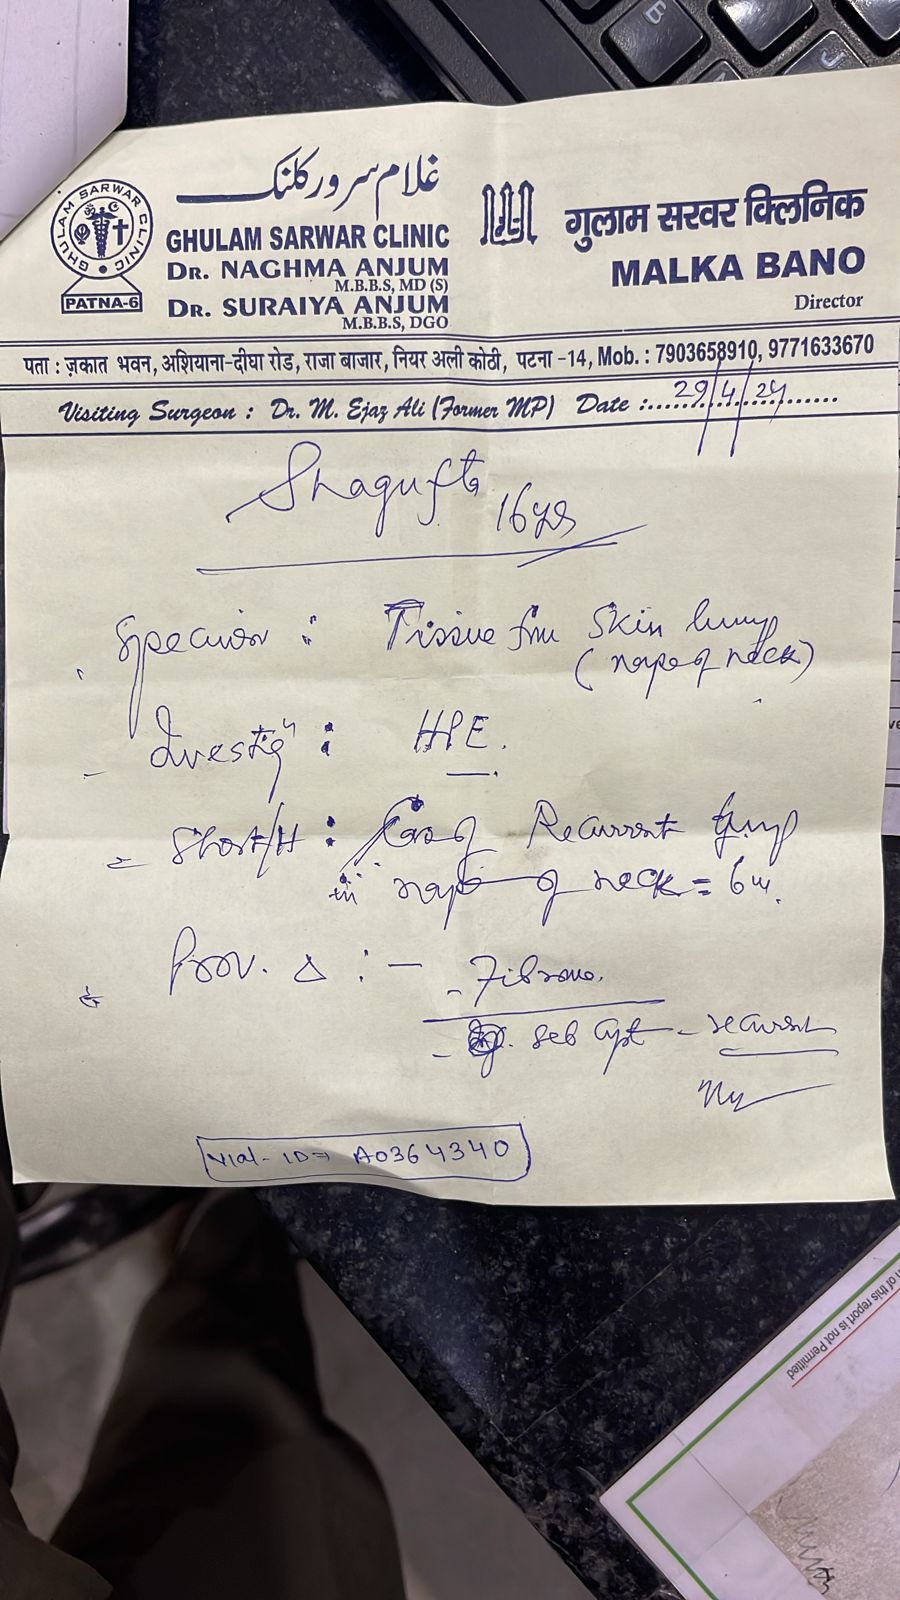 غلام سرور کلنک
GHULAM SARWAR CLINIC
PATNA-6
GHULAM SARWAR CLINIC
DR. NAGHMA ANJUM
M.B.B.S, MD (S)
DR. SURAIYA ANJUM
M.B.B.S, DGO
गुलाम सरवर क्लिनिक
MALKA BANO
Director
पता : ज़कात भवन, अशियाना-दीघा रोड, राजा बाजार, नियर अली कोठी, पटना -14, Mob. : 7903658910, 9771633670
Visiting Surgeon : Dr. M. Ejaz Ali (Former MP) Date :..... 29/4/24
Shagufta 16yrs
Specimen : Tissue from Skin lump
(nape of neck)
Investign : HPE.
Short/H : Case of Recurrent lump
in nape of neck = 6
Prov. Δ : - Fibroma.
- seb cyst - recurrent
Vial-ID⇒ A0364340
of this report is not Permitted
B
J